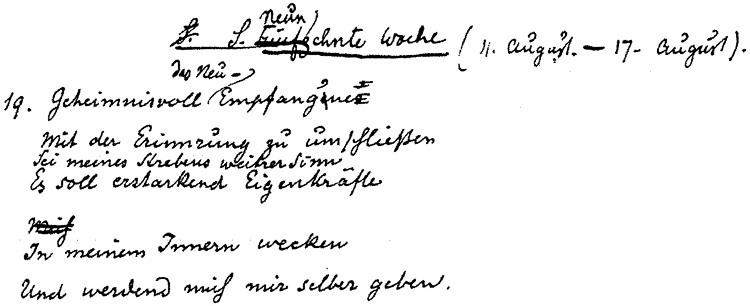 Neun
S. S. Fünfzehnte Woche (11. August. – 17. August).
das Neu –
19. Geheimnisvoll Empfang'ne
Mit der Erinnrung zu umschließen
Sei meines Strebens weitrer Sinn
Es soll erstarkend Eigenkräfte
Mich
In meinem Innern wecken
Und werdend mich mir selber geben.